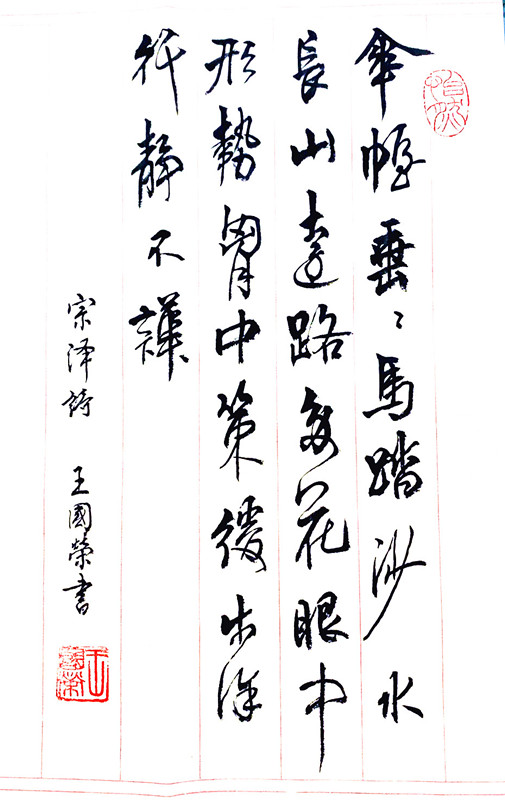 傘幄垂〻馬踏沙水
長山遠路多花眼中
形勢胷中策緩步徐
行靜不譁
宗泽詩 王國榮書
王國榮